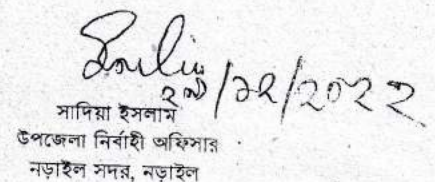 /১২/২০২২
সাদিয়া ইসলাম
উপজেলা নির্বাহী অফিসার
নড়াইল সদর, নড়াইল